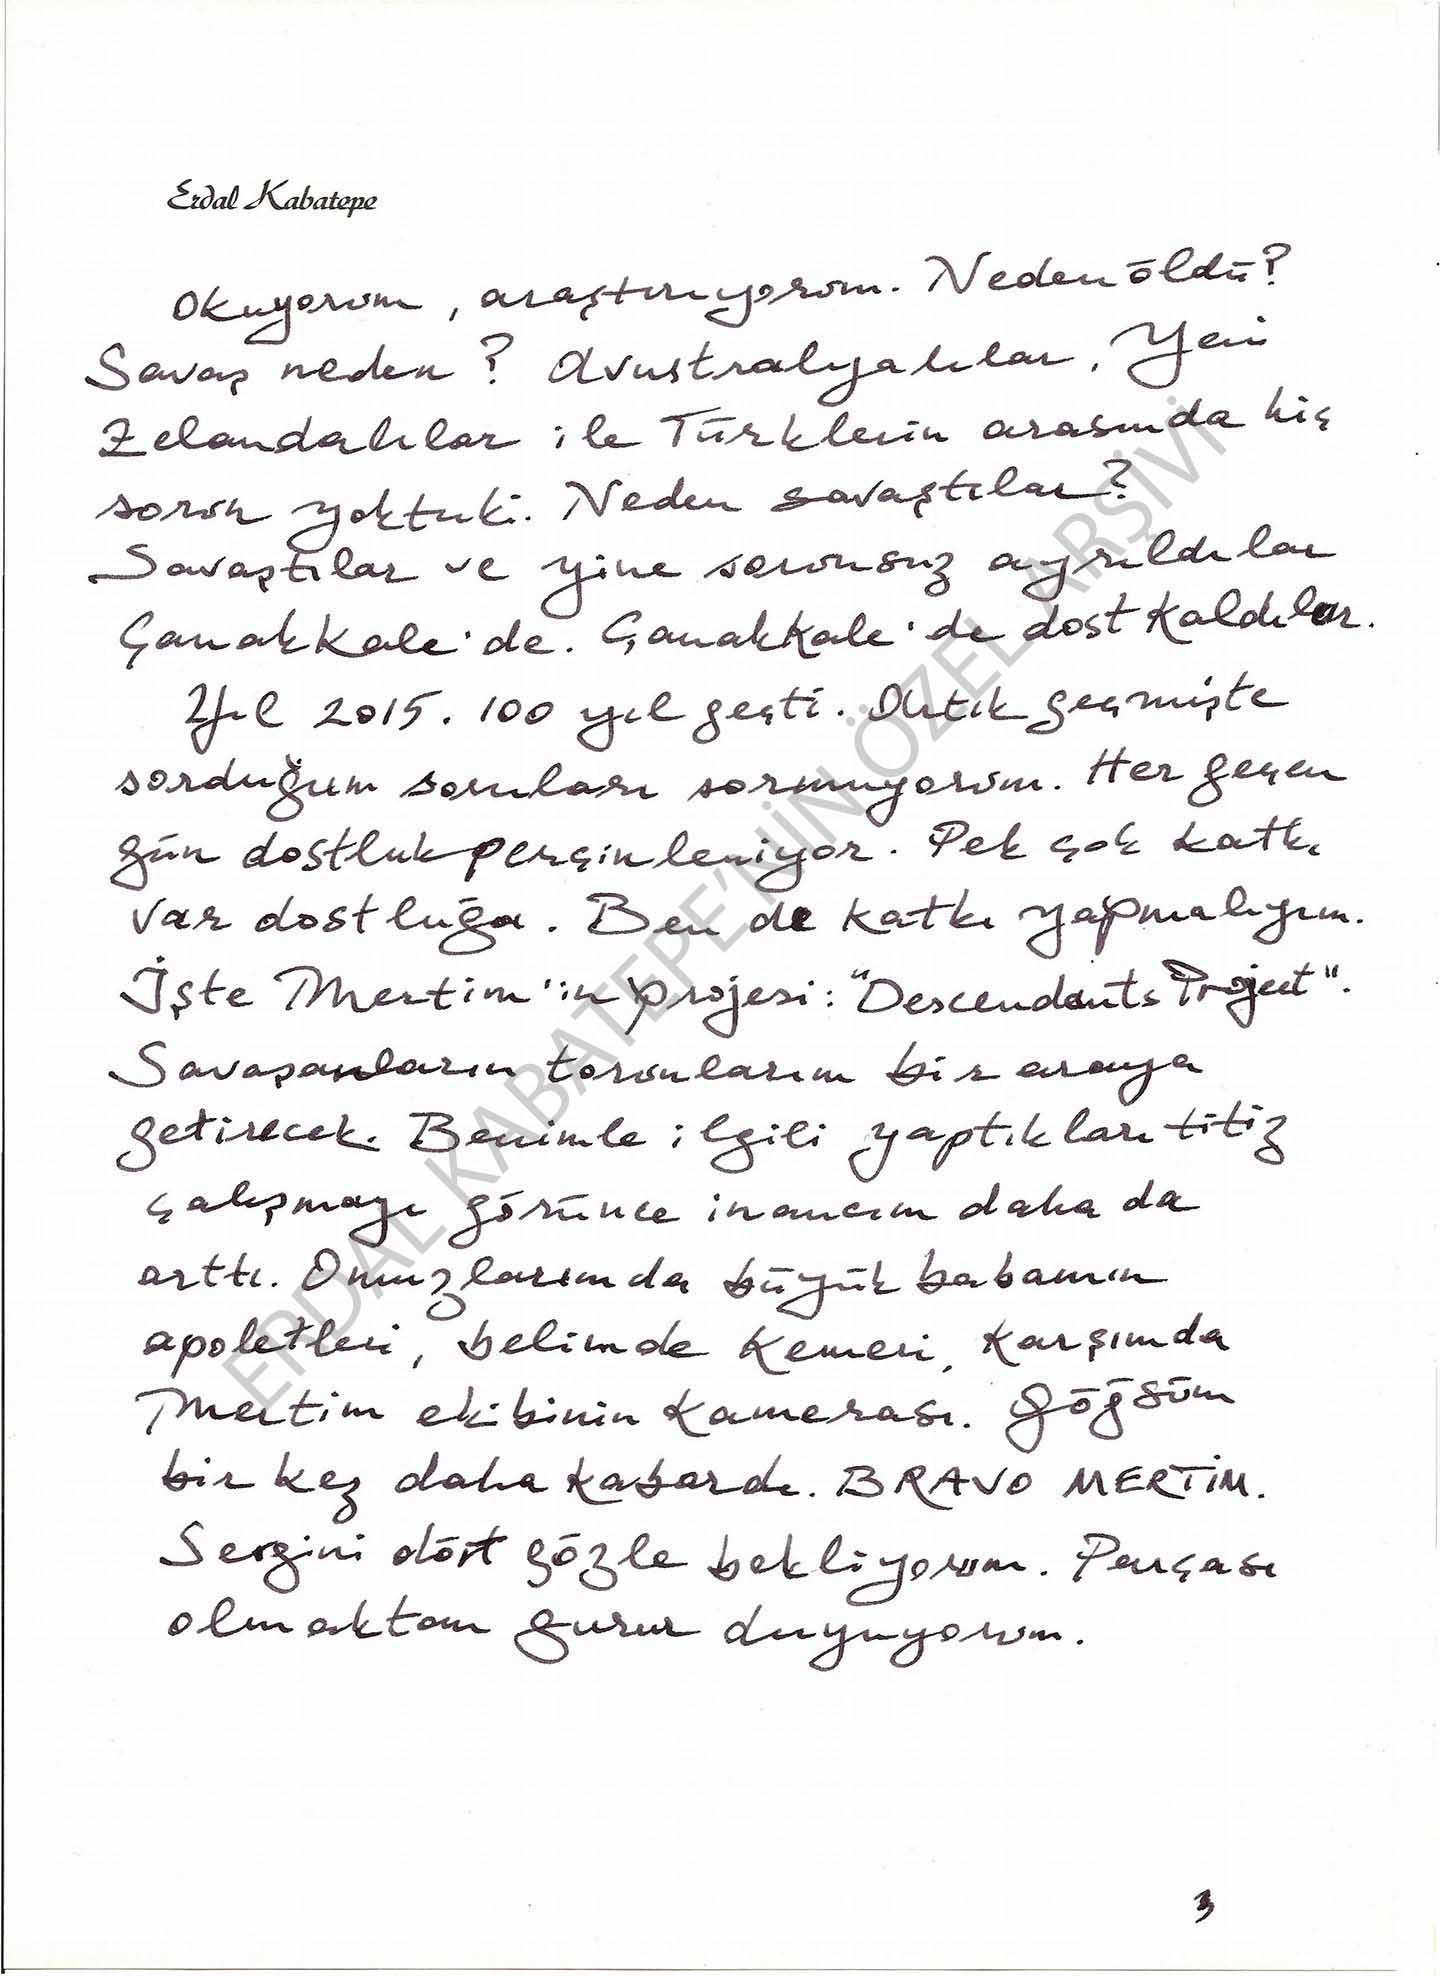 Erdal Kabatepe
Okuyorum, araştırıyorum. Neden öldü?
Savaş neden? Avustralyalılar, Yeni
Zelandalılar ile Türklerin arasında hiç
sorun yoktuki. Neden savaştılar?
Savaştılar ve yine sorunsuz ayrıldılar
Çanakkale'de. Çanakkale'de dost kaldılar.
Yıl 2015. 100 yıl geçti. Artık geçmişte
sorduğum soruları sormuyorum. Her geçen
gün dostluk perçinleniyor. Pek çok katkı
var dostluğa. Ben de katkı yapmalıyım.
İşte Mertim'in projesi: "Descendents Project".
Savaşanların torunlarını bir araya
getirecek. Benimle ilgili yaptıkları titiz
çalışmayı görünce inancım daha da
arttı. Omuzlarımda büyük babamın
apoletleri, belimde kemeri, karşımda
Mertim ekibinin kamerası. Göğsüm
bir kez daha kabardı. BRAVO MERTİM.
Sergini dört gözle bekliyorum. Parçası
olmaktan gurur duyuyorum.
3
ERDAL KABATEPE'NİN ÖZEL ARŞİVİ